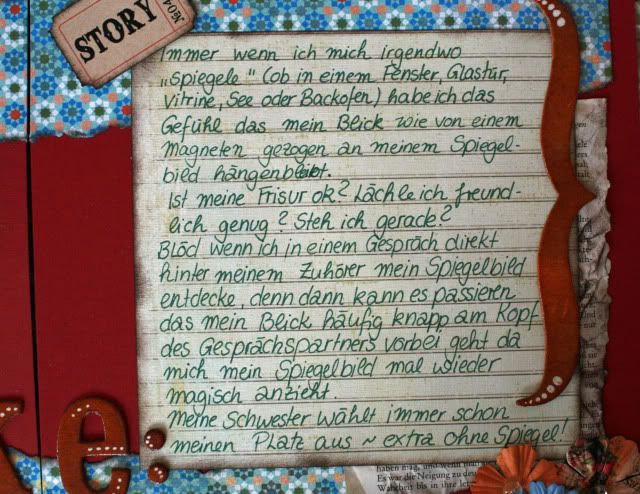 STORY
№04
Immer wenn ich mich irgendwo
„spiegele" (ob in einem Fenster, Glastür,
Vitrine, See oder Backofen) habe ich das
Gefühl das mein Blick wie von einem
Magneten gezogen an meinem Spiegel-
bild hängenbleibt.
Ist meine Frisur ok? Lächle ich freund-
lich genug? Steh ich gerade?
Blöd wenn ich in einem Gespräch direkt
hinter meinem Zuhörer mein Spiegelbild
entdecke, denn dann kann es passieren
das mein Blick häufig knapp am Kopf
des Gesprächspartners vorbei geht da
mich mein Spiegelbild mal wieder
magisch anzieht.
Meine Schwester wählt immer schon
meinen Platz aus ~ extra ohne Spiegel!
ke
haben mag, und wenn
Es war die Neigung zu
Wahrheit bis in ihre